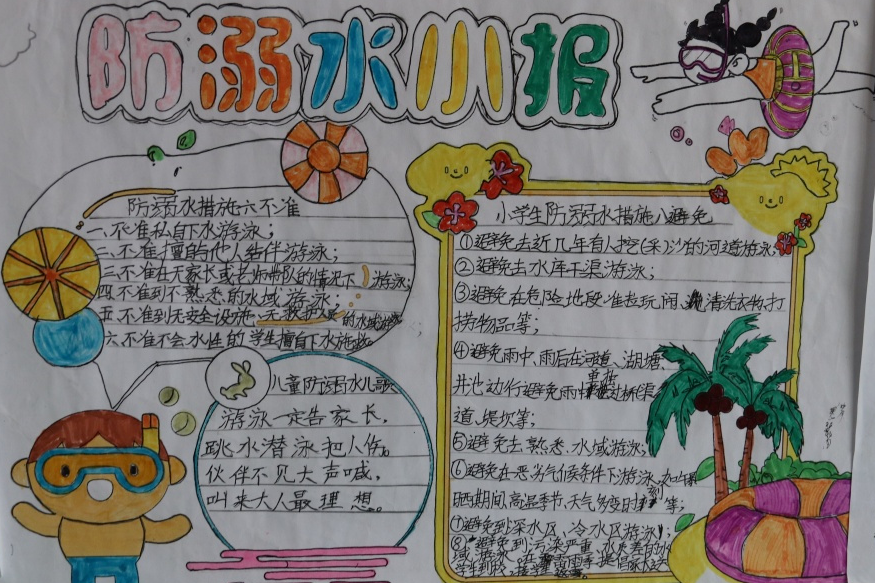 防溺水小报
防溺水措施六不准
一、不准私自下水游泳；
二、不准擅自与他人结伴游泳；
三、不准在无家长或老师带队的情况下游泳；
四、不准到不熟悉的水域游泳；
五、不准到无安全设施、无救护人员的水域游泳；
六、不准不会水性的学生擅自下水施救。
儿童防溺水儿歌
游泳一定告家长，
跳水潜泳把人伤。
伙伴不见大声喊，
叫来大人最理想。
小学生防溺水措施八避免
①避免去近几年有人挖(采)沙的河道游泳；
②避免去水库干渠游泳；
③避免在危险地段准拉玩闹、清洗衣物、打
捞物品等；
④避免雨中、雨后在河道、湖塘、
井池边行避免雨中单独过桥渠
道、堤坎等；
⑤避免去熟悉、水域游泳；
⑥避免在恶劣气候条件下游泳，如
晒期间、高温季节、天气多变时刻等；
⑦避免到深水区、冷水区游泳；
⑧避免到污染严重、水质差的水
域游泳